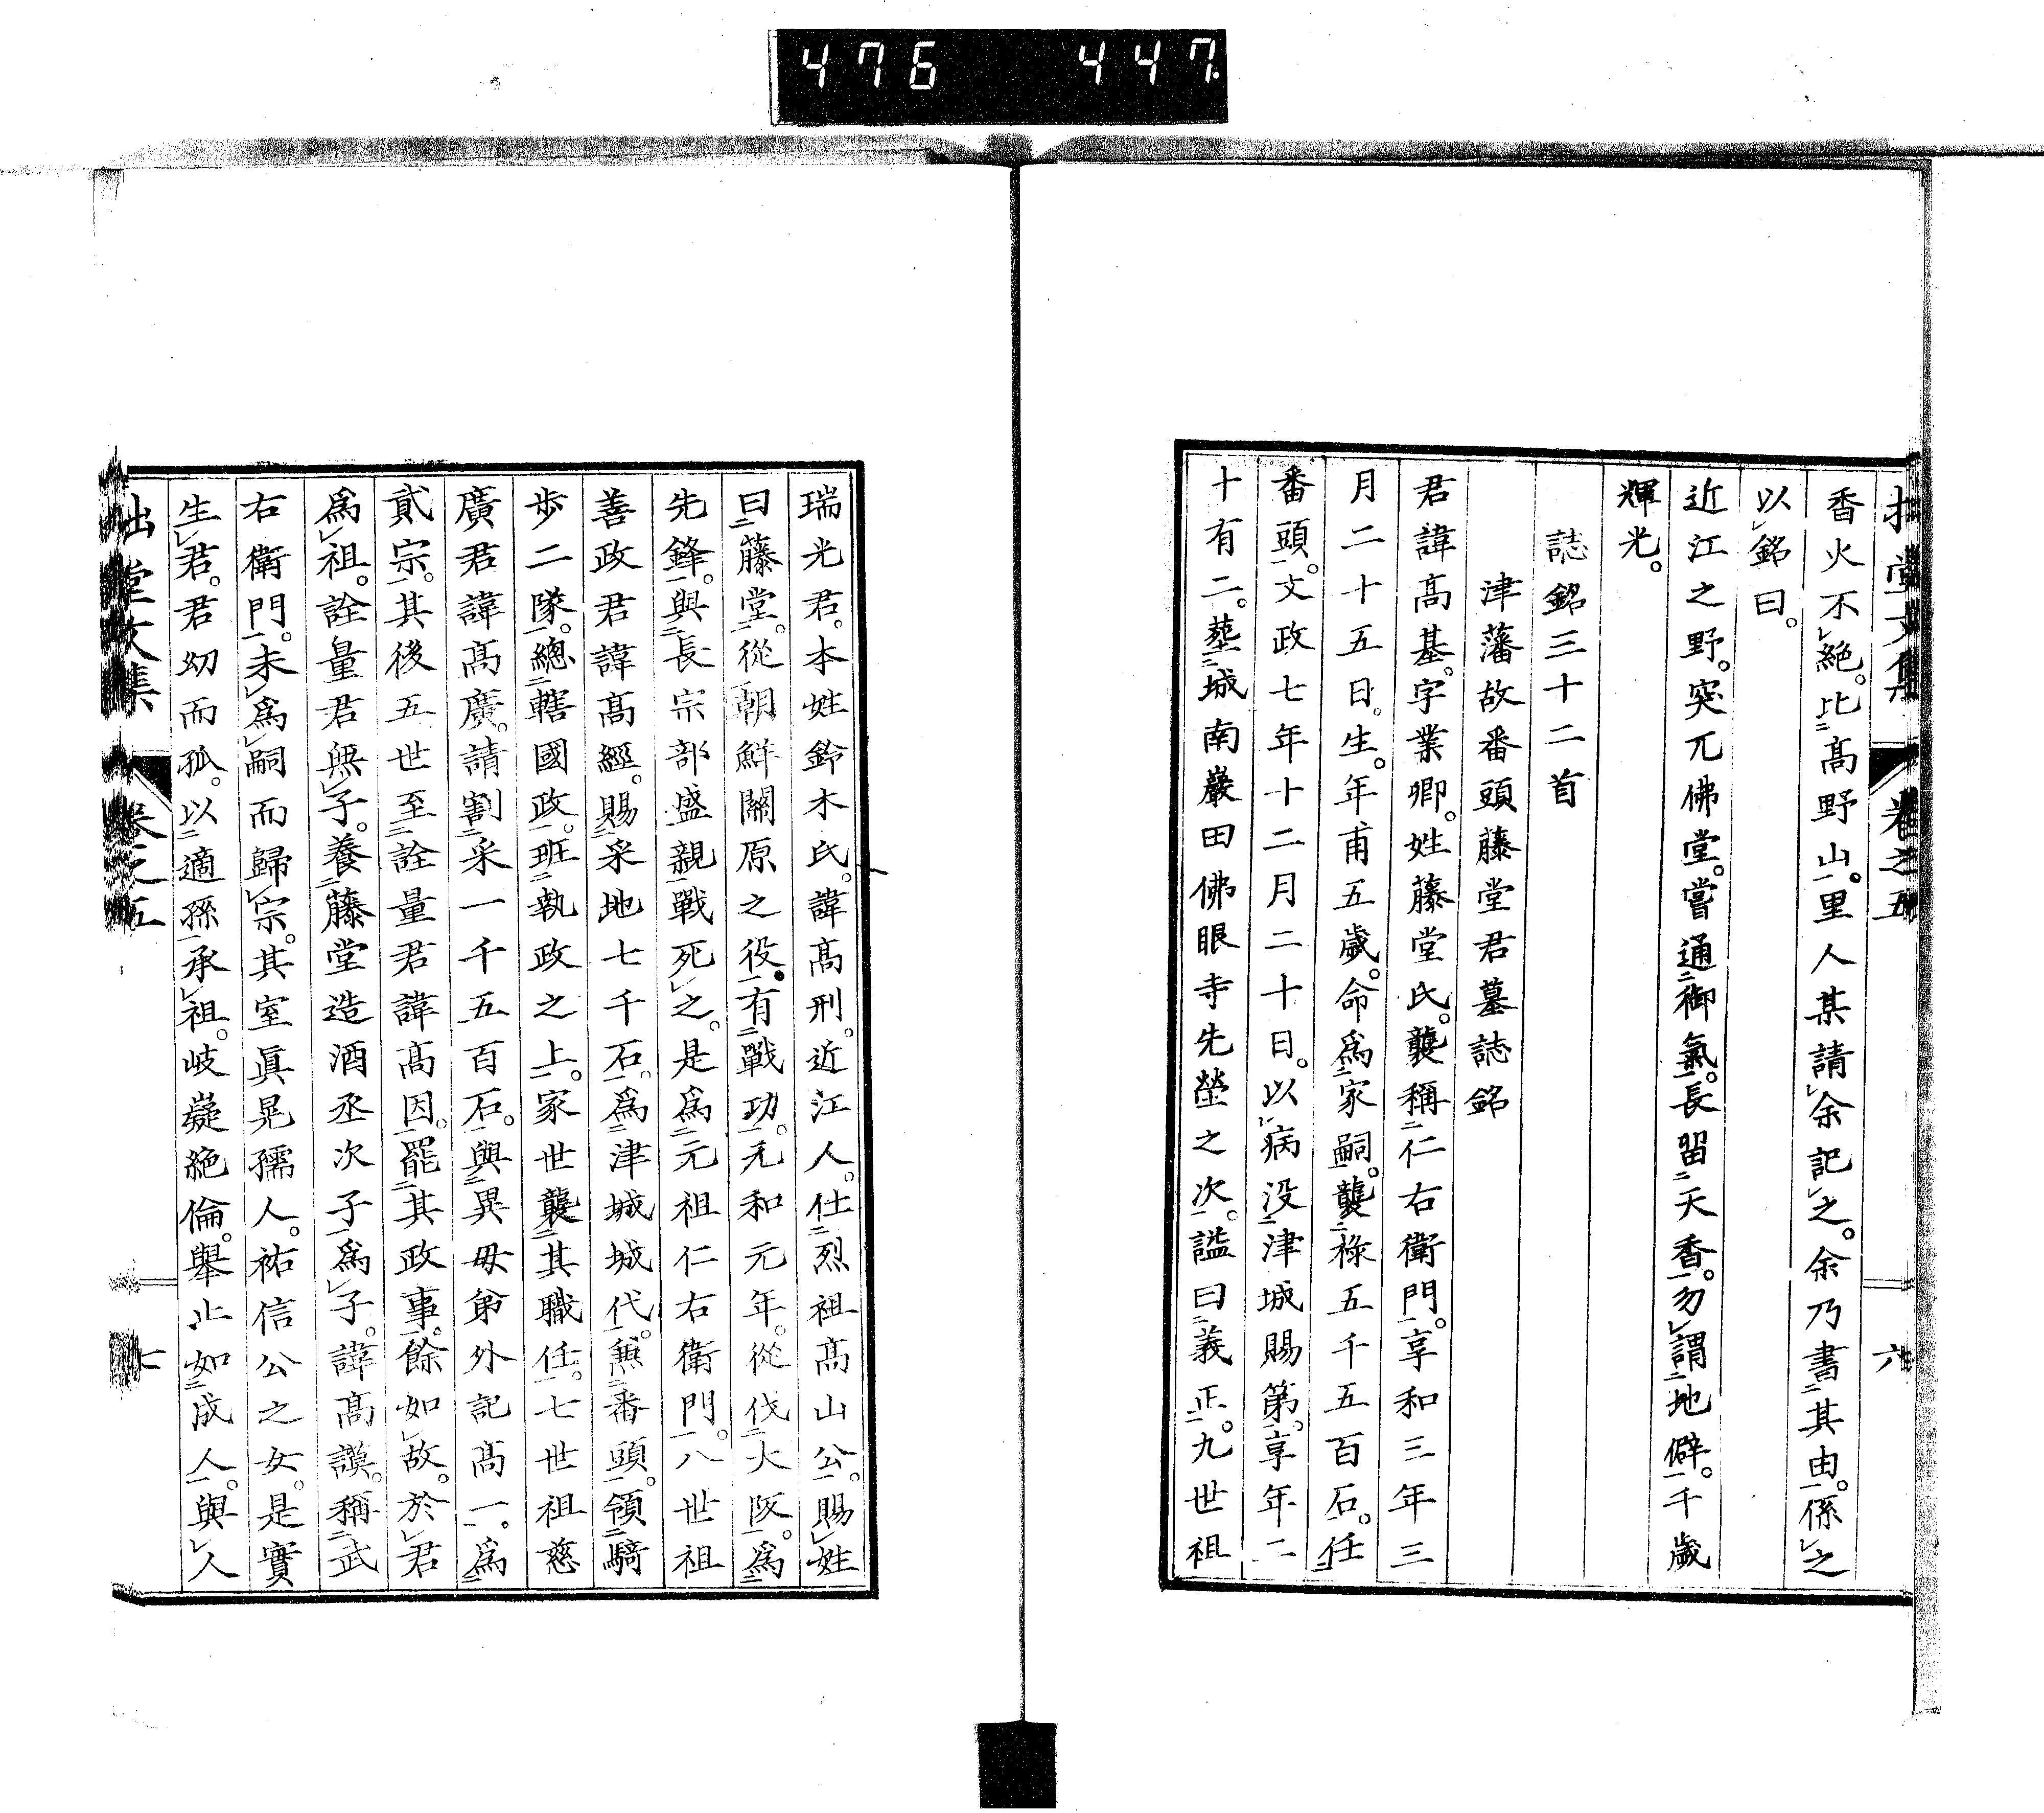 476 447
拙堂文集 卷之五 六
香火不絶。比高野山。里人某請余記之。余乃書其由。係之
以銘曰。
近江之野。突兀佛堂。嘗通御氣。長留天香。勿謂地僻。千歲
輝光。
誌銘三十二首
津藩故番頭藤堂君墓誌銘
君諱高基。字業卿。姓藤堂氏。襲稱仁右衛門。享和三年三
月二十五日。生。年甫五歲。命爲家嗣。襲祿五千五百石。任
番頭。文政七年十二月二十日。以病没津城賜第。享年二
十有二。葬城南巖田佛眼寺先塋之次。謚曰義正。九世祖
瑞光君。本姓鈴木氏。諱高刑。近江人。仕烈祖高山公。賜姓
曰藤堂。從朝鮮關原之役。有戰功。元和元年。從伐大阪。爲
先鋒。與長宗部盛親戰死之。是爲元祖仁右衛門。八世祖
善政君諱高經。賜采地七千石。爲津城城代。兼番頭。領騎
步二隊。總轄國政。班執政之上。家世襲其職任。七世祖慈
廣君諱高廣。請割采一千五百石。與異母弟外記高一。爲
貳宗。其後五世至詮量君諱高因。罷其政事。餘如故。於君
爲祖。詮量君無子。養藤堂造酒丞次子爲子。諱高謨。稱武
右衛門。未爲嗣而歸宗。其室眞晃孺人。祐信公之女。是實
生君。君幼而孤。以適孫承祖。岐嶷絶倫。舉止如成人。與人
拙堂文集 卷之五 七